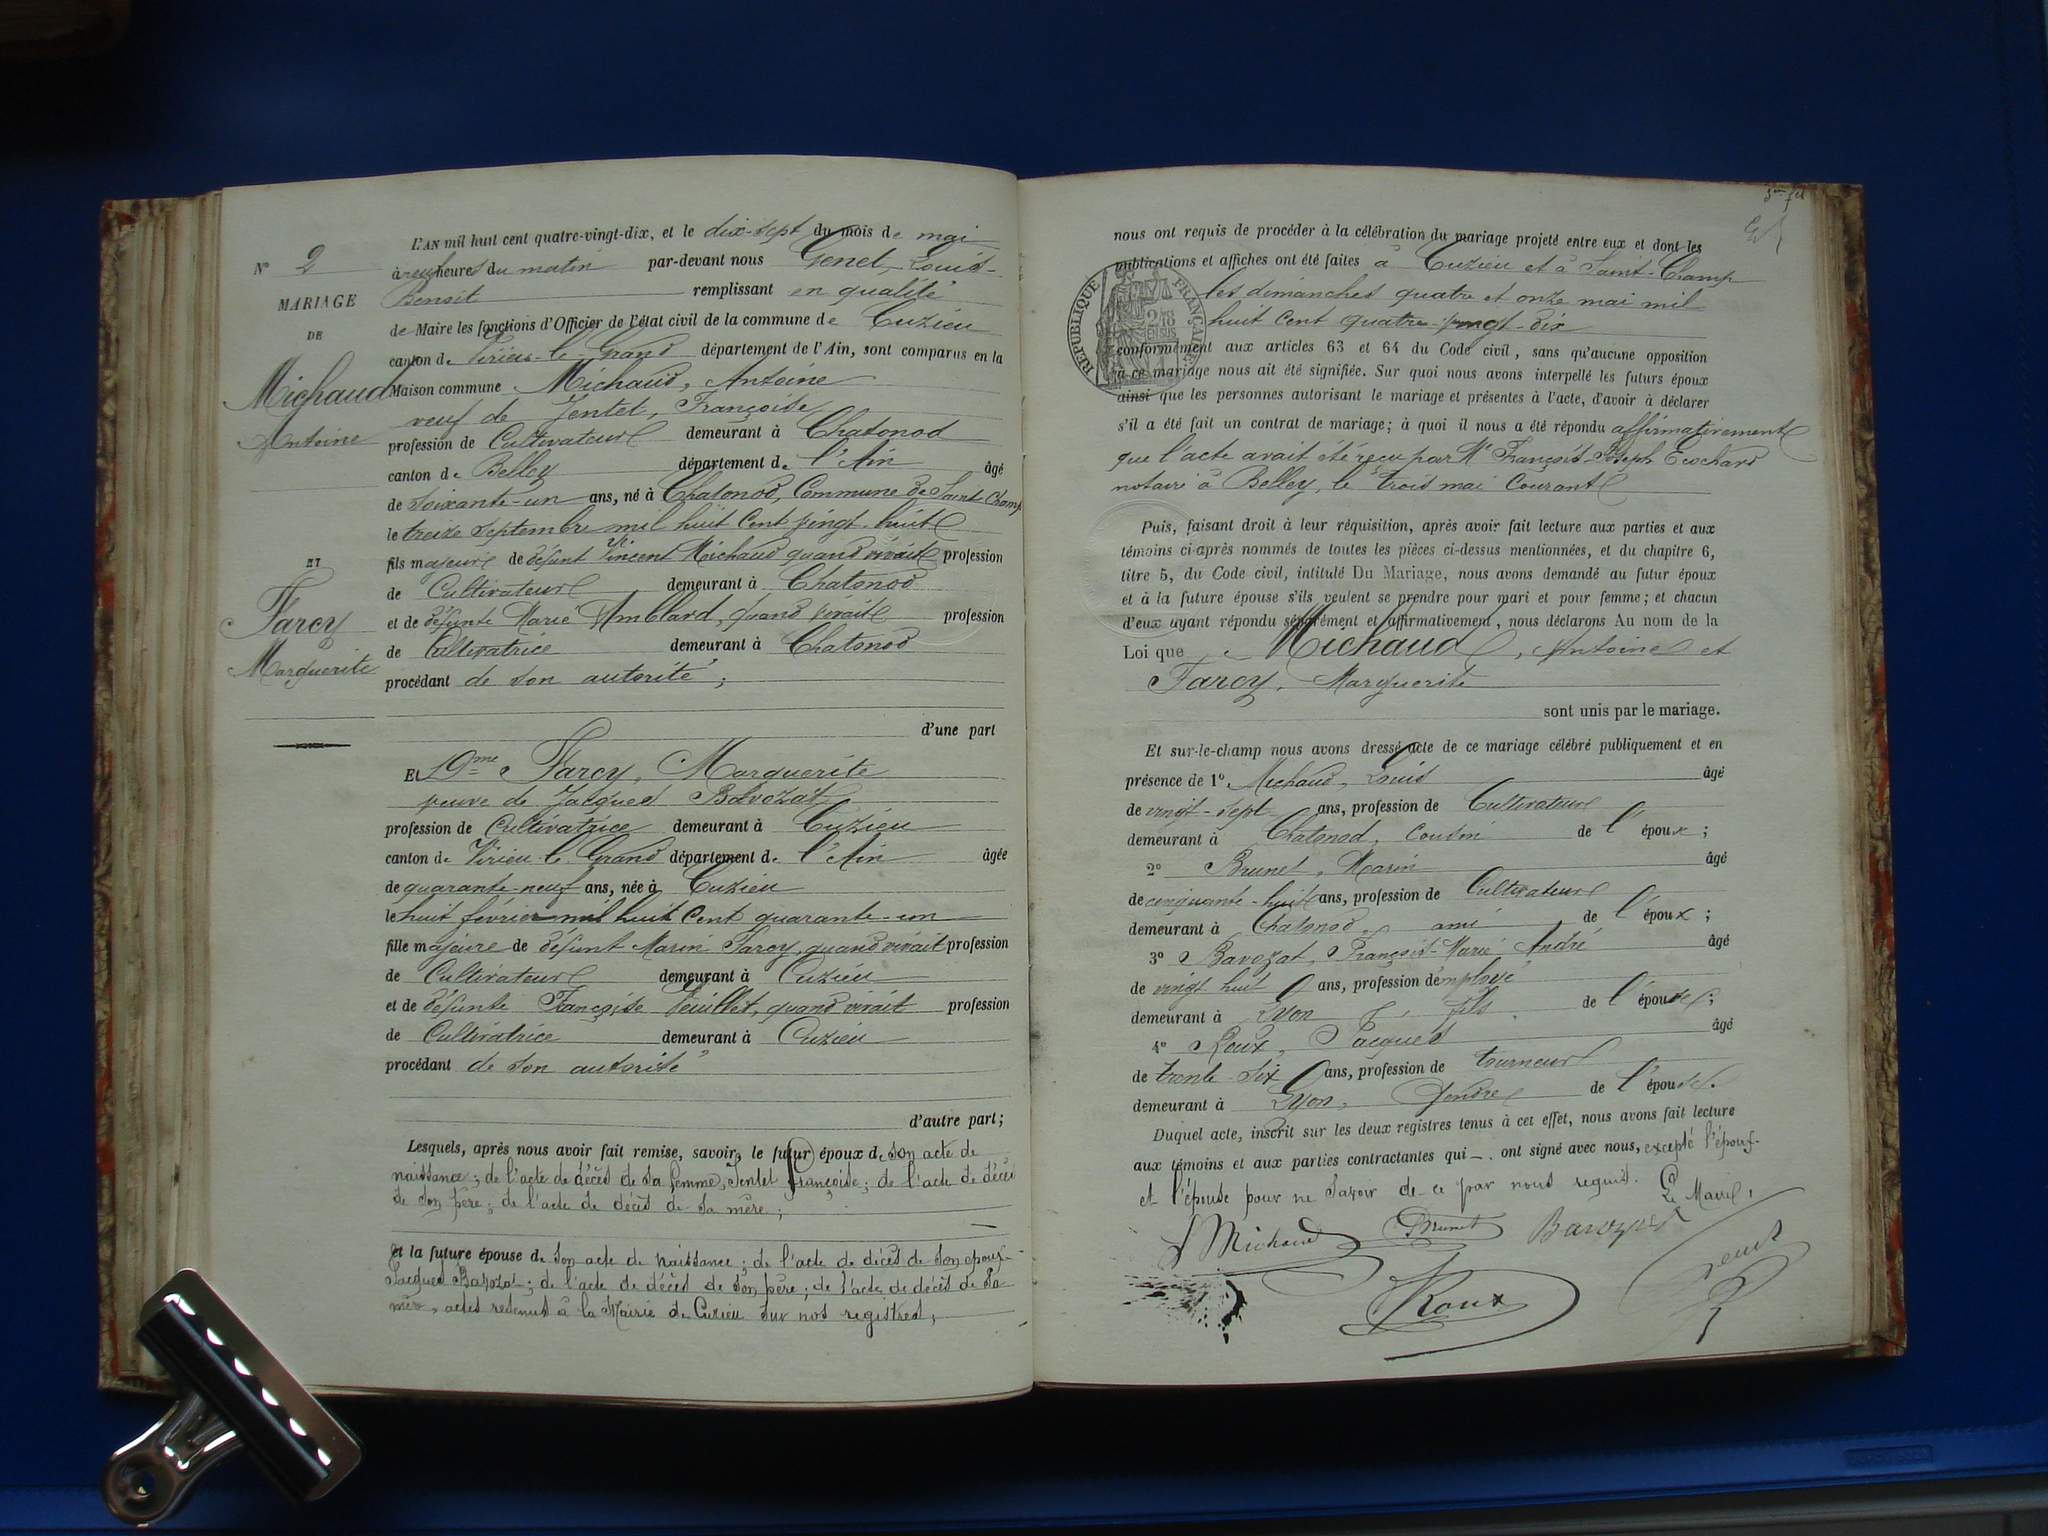 N° 2
MARIAGE
DE
Michaud
Antoine
ET
Farcy
Marguerite
L'AN mil huit cent quatre-vingt-dix, et le dix-sept du mois de mai
à neuf heures du matin par-devant nous Genet, Louis-
Benoit remplissant en qualité
de Maire les fonctions d'Officier de l'état civil de la commune de Cuzieu
canton de Virieu-le-Grand département de l'Ain, sont comparus en la
Maison commune Michaud, Antoine
veuf de Jentet, Françoise
profession de Cultivateur demeurant à Chatonod
canton de Belley département de l'Ain âgé
de soixante-un ans, né à Chatonod, Commune de Saint-Champ
le treize septembre mil huit cent vingt-huit
fils majeur de défunt Vincent Michaud quand vivait profession
de Cultivateur demeurant à Chatonod
et de défunte Marie Amblard, quand vivait profession
de Cultivatrice demeurant à Chatonod
procédant de son autorité ;
d'une part
Et Dme Farcy, Marguerite
veuve de Jacques Bavozat
profession de Cultivatrice demeurant à Cuzieu
canton de Virieu-le-Grand département de l'Ain âgée
de quarante-neuf ans, née à Cuzieu
le huit février mil huit cent quarante-un
fille majeure de défunt Marin Farcy, quand vivait profession
de Cultivateur demeurant à Cuzieu
et de défunte Françoise Veuillet, quand vivait profession
de Cultivatrice demeurant à Cuzieu
procédant de son autorité
d'autre part ;
Lesquels, après nous avoir fait remise, savoir, le futur époux de son acte de
naissance ; de l'acte de décès de sa femme, Jentet Françoise ; de l'acte de décès
de son père ; de l'acte de décès de sa mère ;
et la future épouse de son acte de naissance ; de l'acte de décès de son époux
Jacques Bavozat ; de l'acte de décès de son père ; de l'acte de décès de sa
mère, actes retenus à la Mairie de Cuzieu sur nos registres,
nous ont requis de procéder à la célébration du mariage projeté entre eux et dont les
publications et affiches ont été faites à Cuzieu et à Saint-Champ
les dimanches quatre et onze mai mil
huit cent quatre-vingt-dix
RÉPUBLIQUE FRANÇAISE
conformément aux articles 63 et 64 du Code civil, sans qu'aucune opposition
à ce mariage nous ait été signifiée. Sur quoi nous avons interpellé les futurs époux
ainsi que les personnes autorisant le mariage et présentes à l'acte, d'avoir à déclarer
s'il a été fait un contrat de mariage ; à quoi il nous a été répondu affirmativement
que l'acte avait été reçu par Me François-Joseph
notaire à Belley, le trois mai courant
Puis, faisant droit à leur réquisition, après avoir fait lecture aux parties et aux
témoins ci-après nommés de toutes les pièces ci-dessus mentionnées, et du chapitre 6,
titre 5, du Code civil, intitulé Du Mariage, nous avons demandé au futur époux
et à la future épouse s'ils veulent se prendre pour mari et pour femme ; et chacun
d'eux ayant répondu séparément et affirmativement, nous déclarons Au nom de la
Loi que Michaud, Antoine et
Farcy, Marguerite
sont unis par le mariage.
Et sur-le-champ nous avons dressé acte de ce mariage célébré publiquement et en
présence de 1° Michaud, Louis âgé
de vingt-sept ans, profession de Cultivateur
demeurant à Chatonod, cousin de l'époux ;
2° Brunet, Marin âgé
de cinquante-huit ans, profession de Cultivateur
demeurant à Chatonod, ami de l'époux ;
3° Bavozat, François-Marie André âgé
de vingt huit ans, profession d'employé
demeurant à Lyon, fils de l'épouse ;
4° Roux, Jacques âgé
de trente-six ans, profession de tourneur
demeurant à Lyon, Gendre de l'épouse.
Duquel acte, inscrit sur les deux registres tenus à cet effet, nous avons fait lecture
aux témoins et aux parties contractantes qui ont signé avec nous, excepté l'époux
et l'épouse pour ne savoir de ce par nous requis. Le Maire,
Michaud Brunet Bavozat
Roux Genet